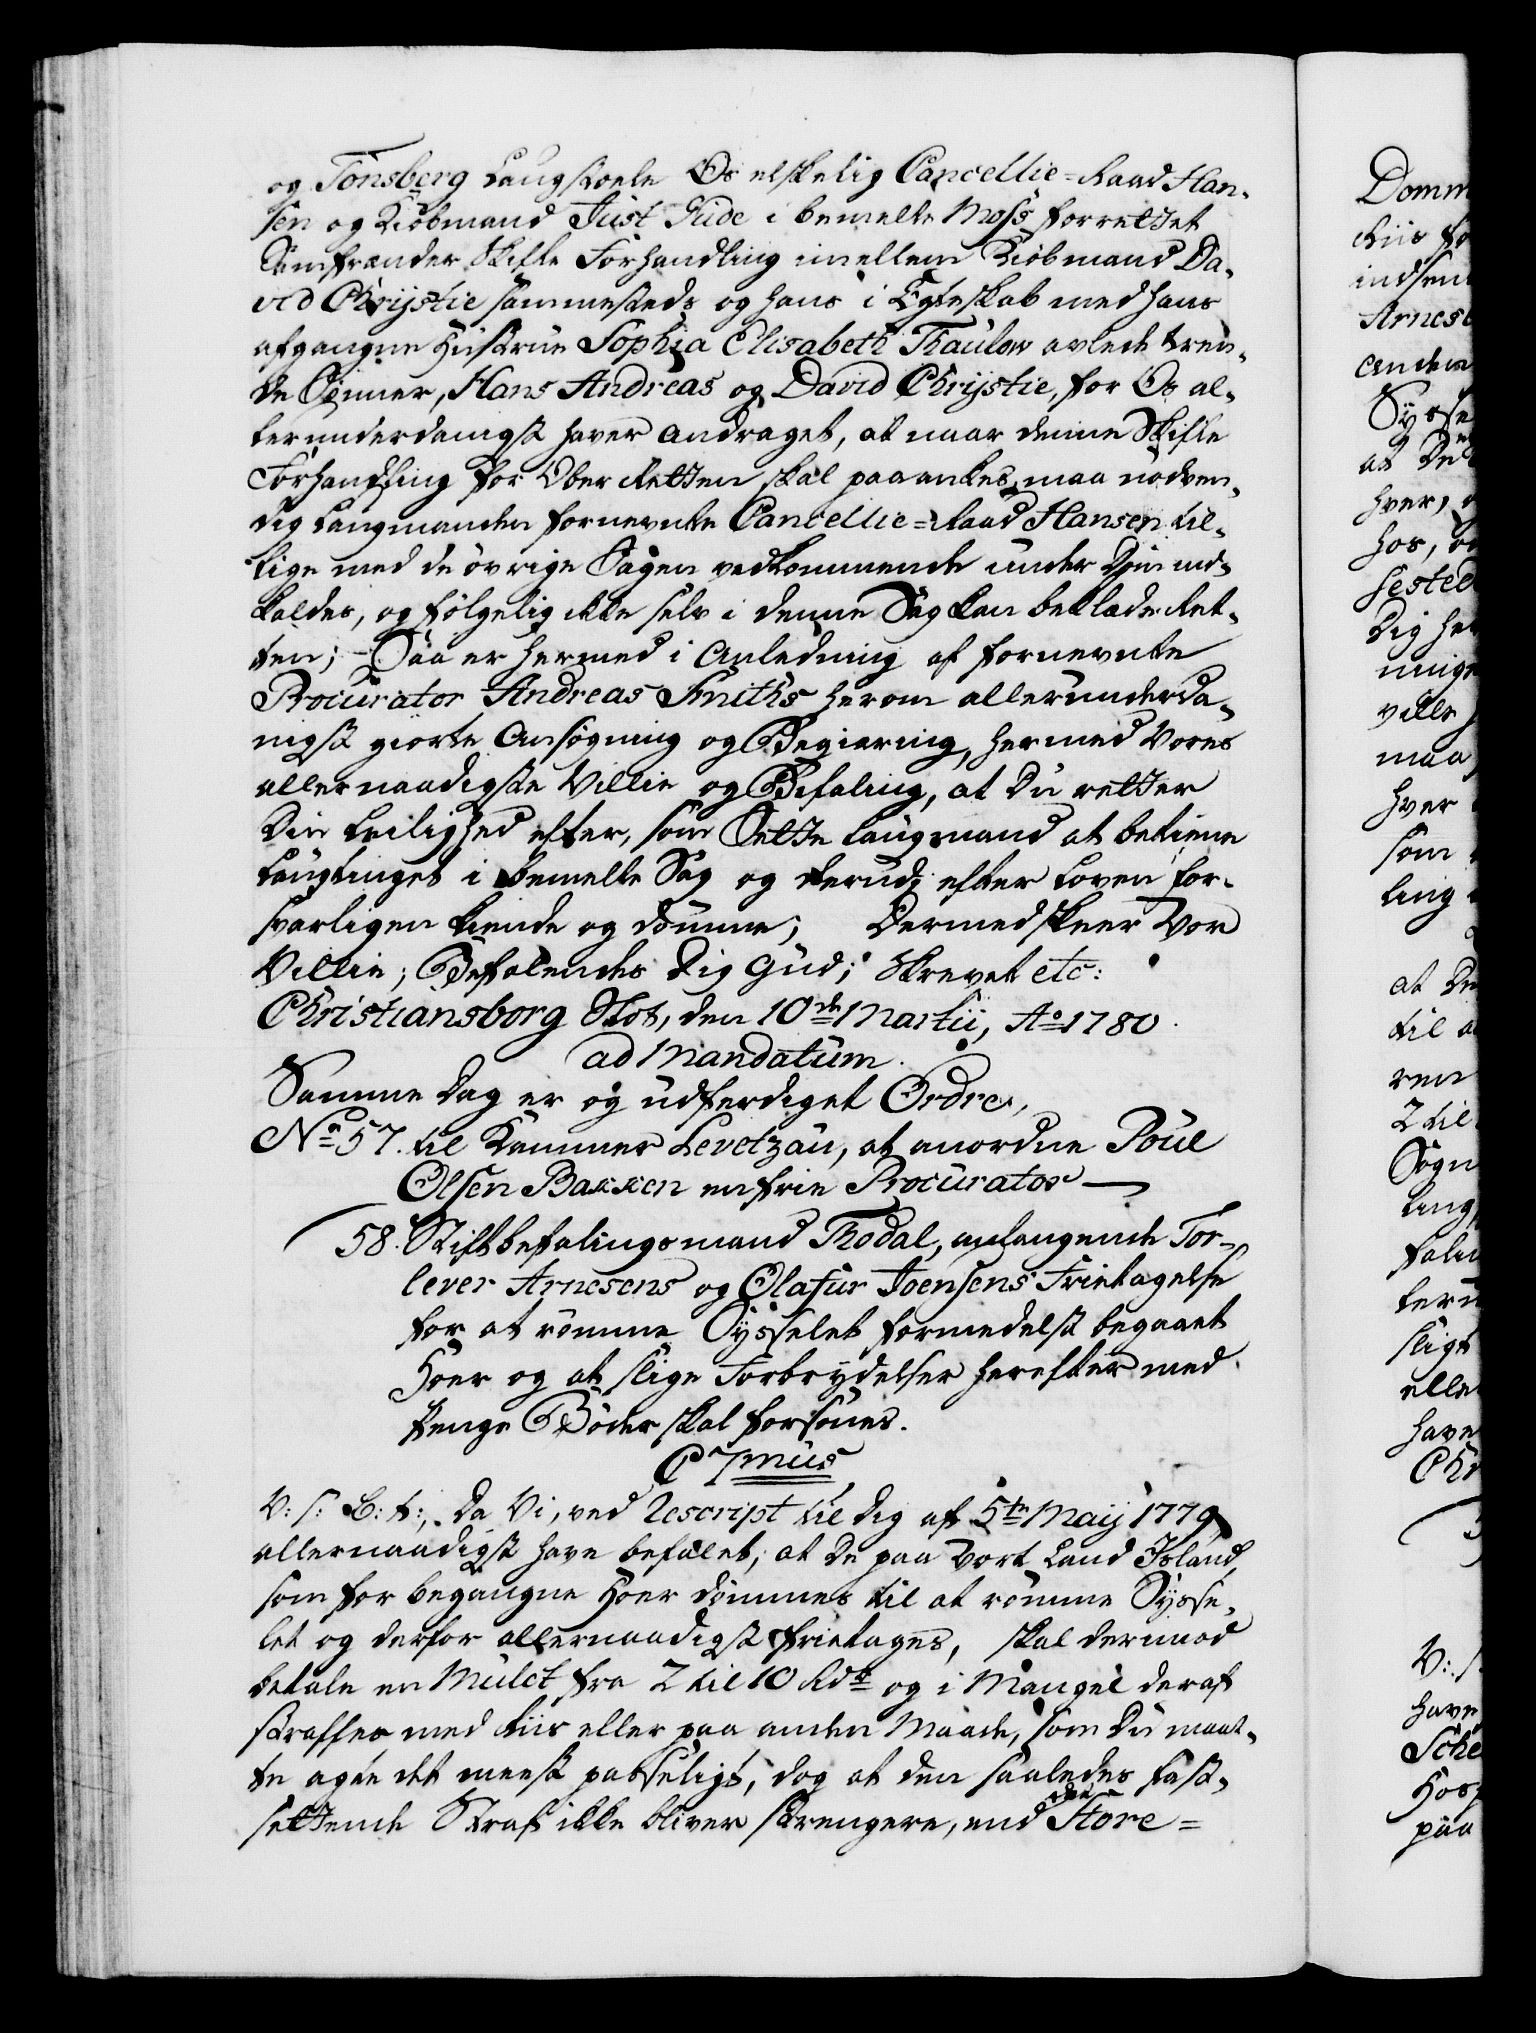 og Tønsberg Laugstoele Os elskelig Cancellie=Raad Han-
sen og Kiöbmand Just Gude i bemelte Moss forrettet
Samfrænder Skifte Forhandling imellem Kiöbmand Da-
vid Chrijstie sammesteds og hans i Egteskab med hans
afgangne Hustrue Sophia Elisabeth Thaulow avlede tven-
de Sönner, Hans Andreas og David Chrijstie, for Os al-
lerunderdanigst haver andraget, at naar denne Skifte
Forhandling for Ober Retten skal paaankes, maa nödven-
dig Laugmanden fornevnte Cancellie=Raad Hansen til-
lige med de övrige Sagen vedkommende under Dom ind-
kaldes, og fölgelig ikke selv i denne Sag kan beklæde Ret-
ten; – Saa er hermed i Anledning af fornevnte
Procurator Andreas Smiths herom allerunderda-
nigst giorte Ansøgning og Begiæring, hermed Vores
allernaadigste Villie og Befaling, at Du retter
Din Leilighed efter, som Sætte Laugmand at betiene
Laugtinget i bemelte Sag og derudj efter Loven for-
svarligen kiende og dömme; Dermed skeer Vor
Villie; Befalendes Dig Gud; Skrevet etc:
Christiansborg Slot, den 10de Martii, Ao 1780.
ad Mandatum.
Samme Dag er og udferdiget Ordre,
No 57. til Kammer Levetzau, at anordne Poul
Olsen Bakken en frie Procurator —
58. Stiftbefalingsmand Thodal, anlangende Tor-
lever Arnesens og Olafur Joensens Frietagelse
for at römme Sysselet formedelst begaaet
Hoer og at slige Forbrydelser herefter med
Penge Böder skal forsones.
C 7mus
V: s: B: t:, Da Vi, ved Rescript til dig af 5te Maij 1779,
allernaadigst have befalet, at de paa Vort Land Island,
som for begangne Hoer dömmes til at römme Sysse-
let og derfor allernaadigst frietages, skal derimod
betale en Mulct fra 2 til 10 Rdr og i Mangel deraf
straffes med Riis eller paa anden Maade, som Du maat-
te agte det meest passeligt, dog at den saaledes fast-
settende Straf ikke bliver strengere, end den Store=